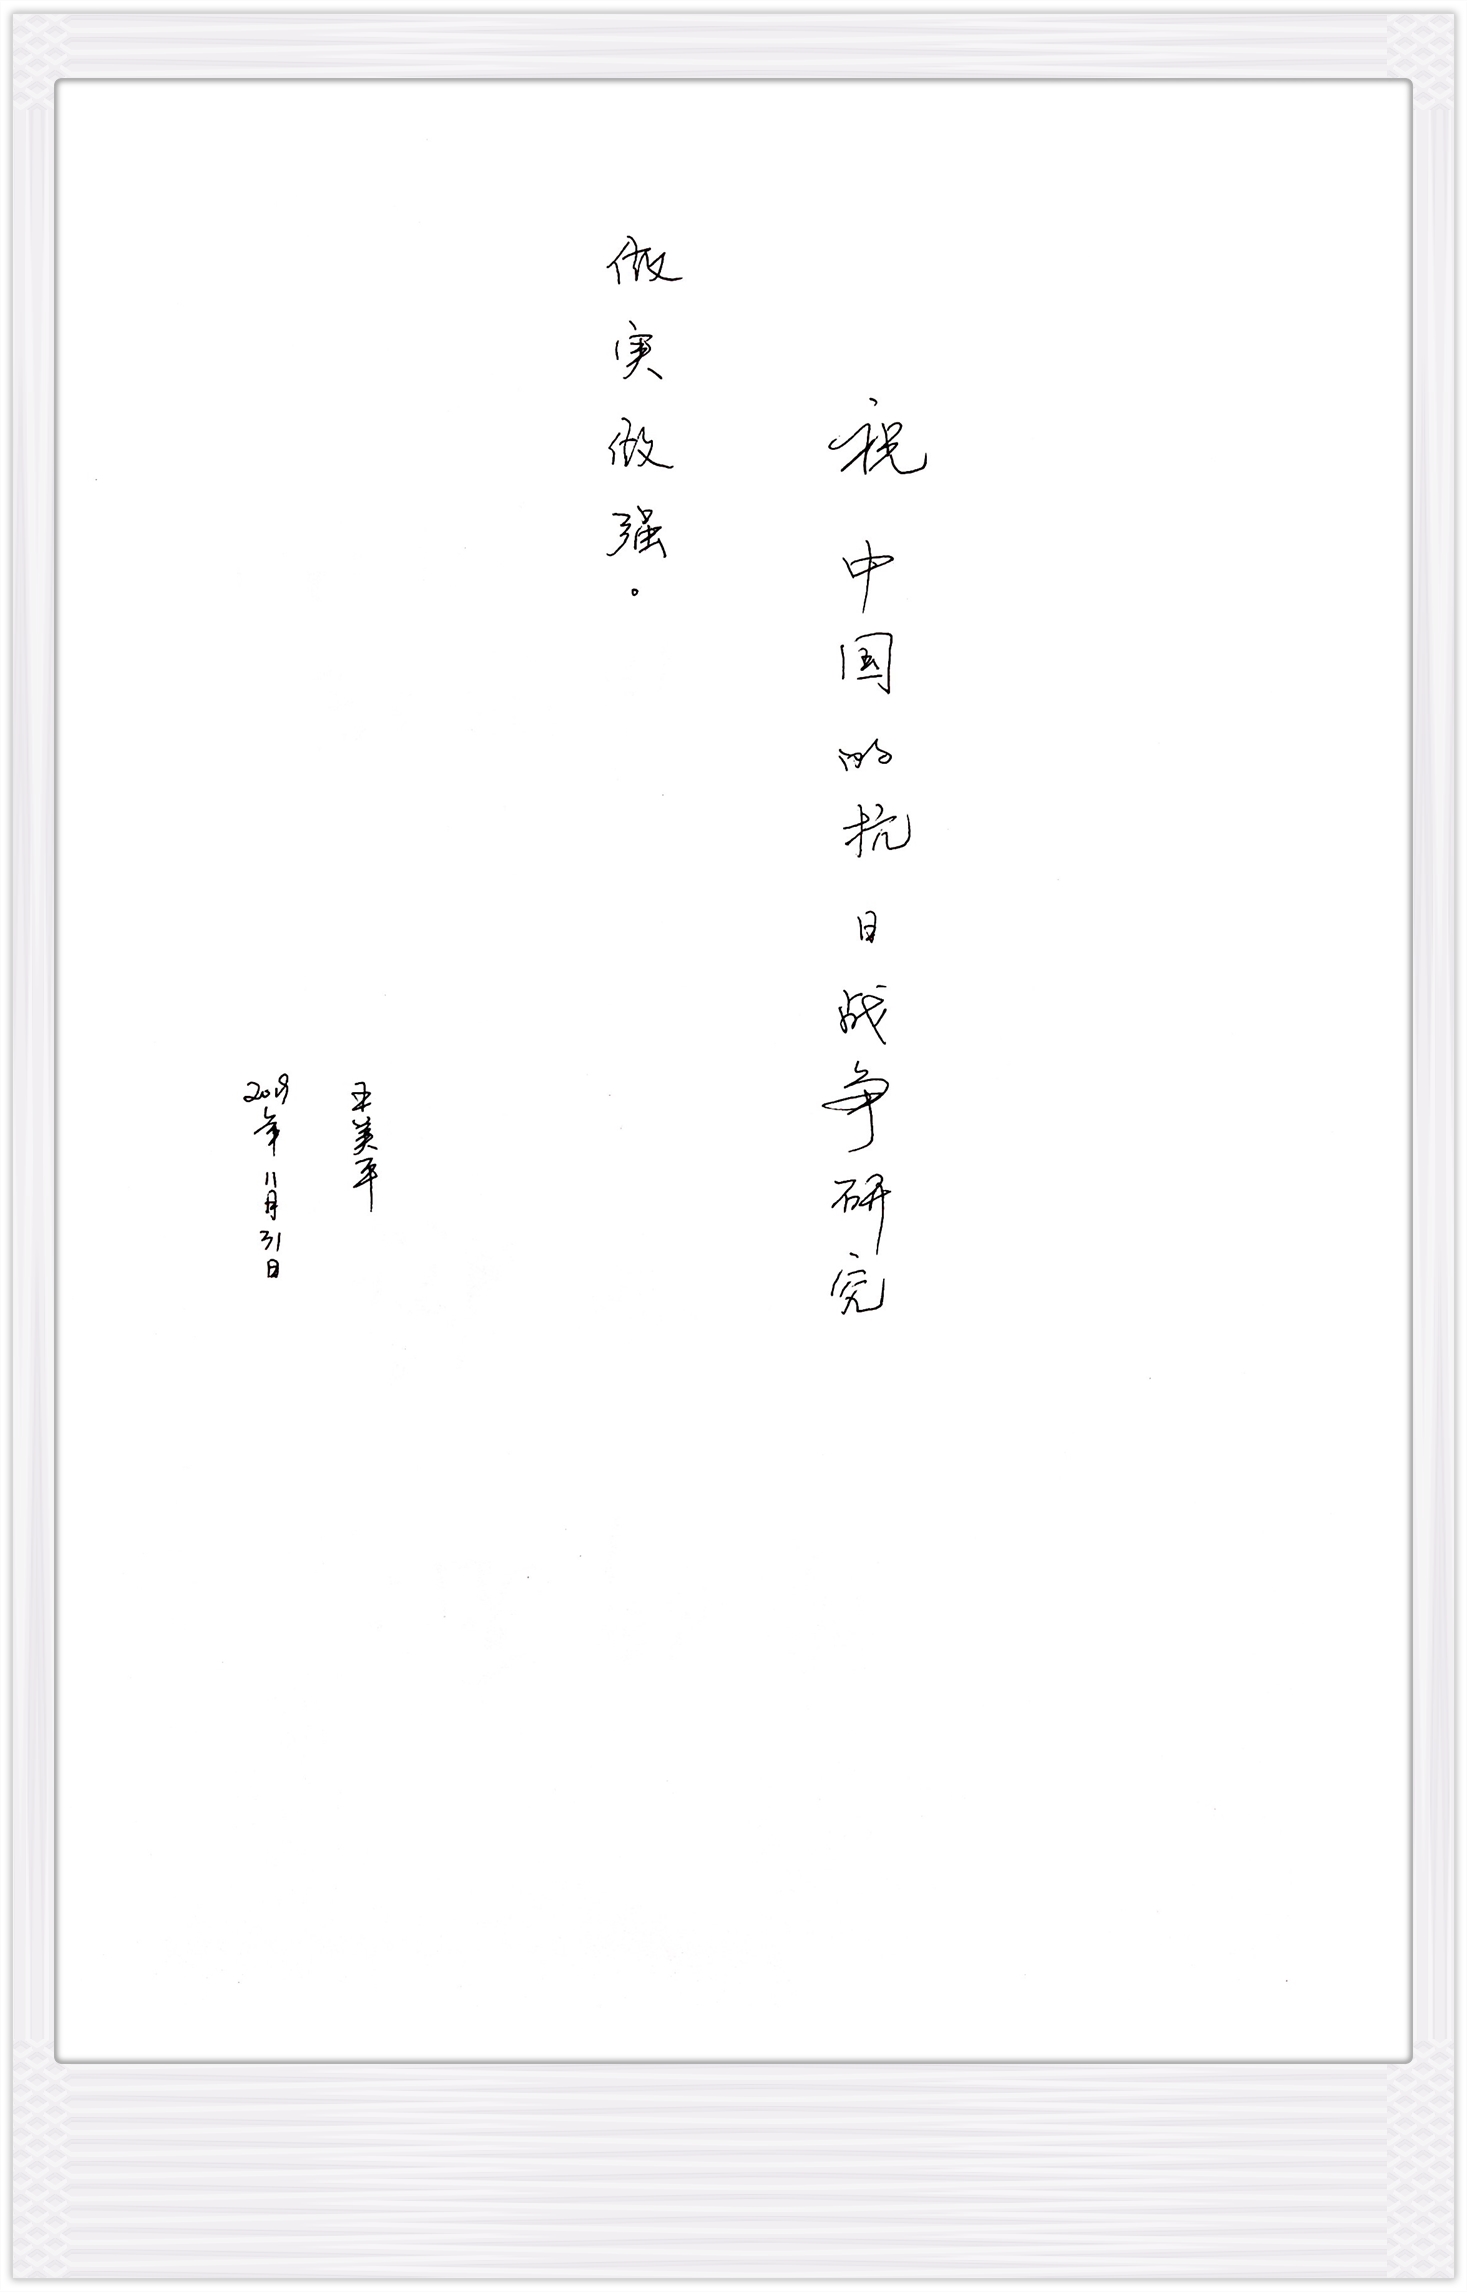 祝中国的抗日战争研究
做实做强。
王美平
2019年11月31日